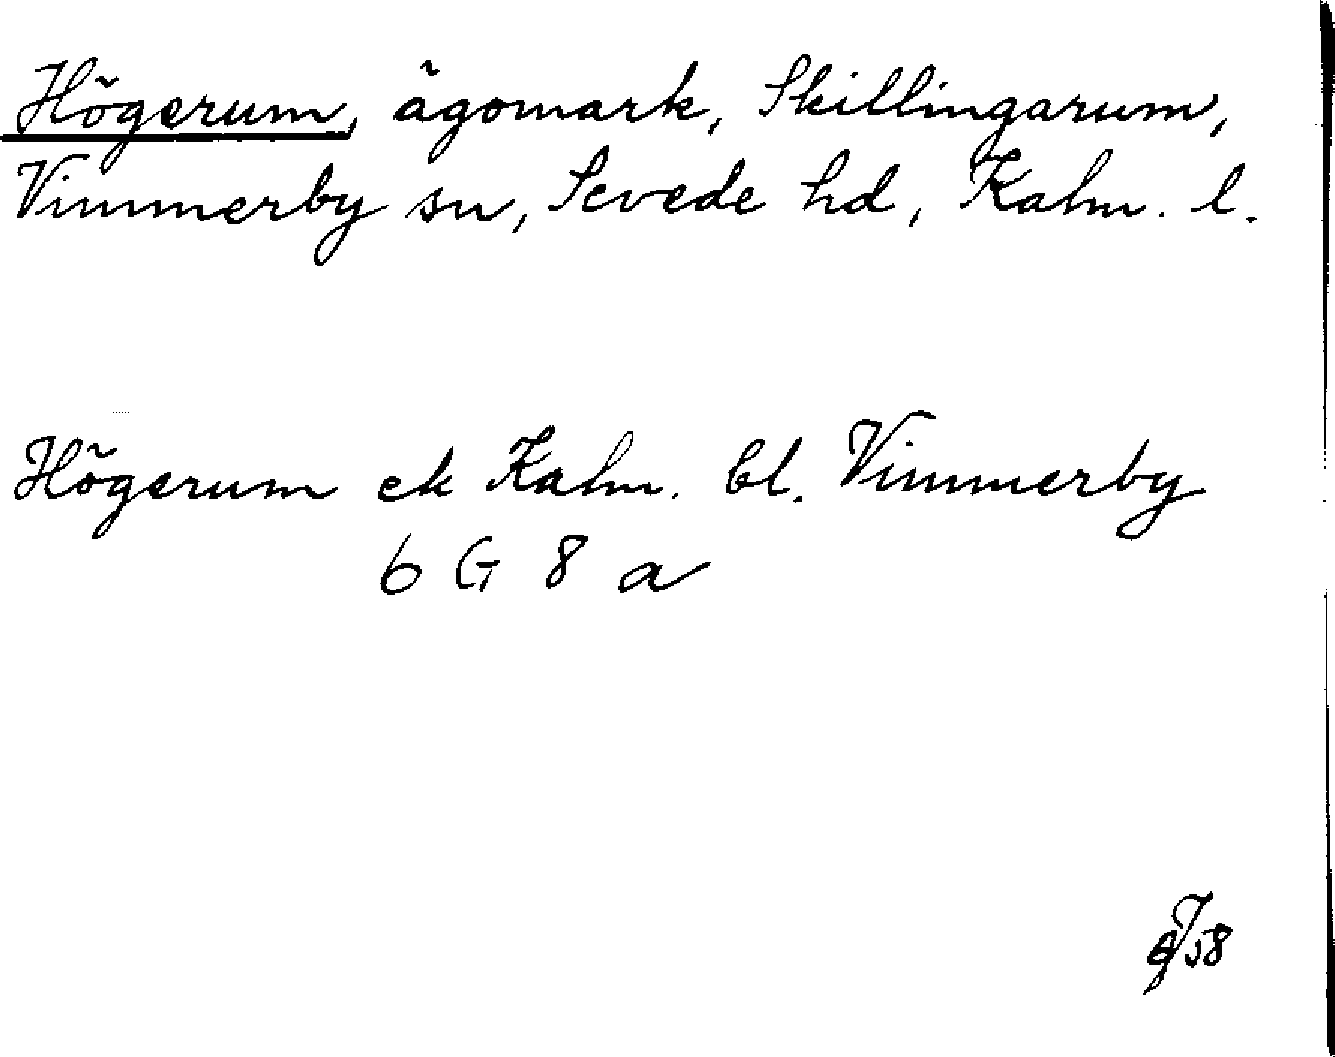 Högerum, ägomark, Skillingarum,
Vimmerby sn, Sevede hd, Kalm. l.
Högerum ek Kalm. bl. Vimmerby
6 G 8 a
58